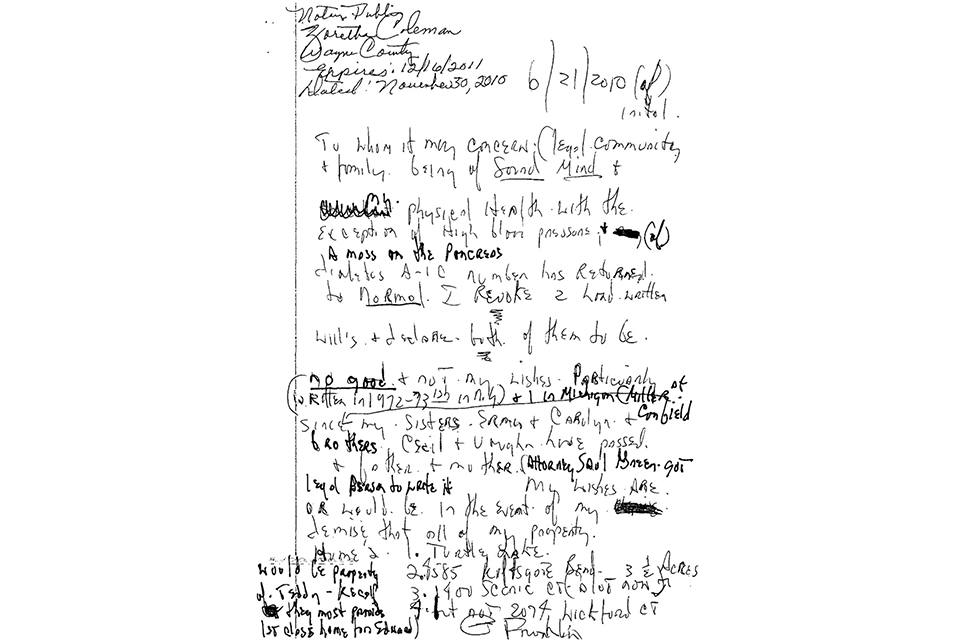 Notary Public
Zoretha Coleman
Wayne County
Expires: 12/16/2011
Dated: November 30, 2010
6/21/2010 (af)
initial.
To whom it may concern; (legal community
+ family. being of Sound Mind +
physical Health with the
exception of High blood pressure, + (af)
A mass on the Pancreas
diabetes A-1C number has Returned.
to Normal. I Revoke 2 hand written
will's + declare both of them to be.
no good + not my wishes. Particularly
Written in 1972-73 in N.Y.) + 1 in Michigan (Miller of
Canfield
Since my Sisters Erma + Carolyn +
brothers Cecil + Vaughn have passed.
+ father + mother. (Attorney Saul Green got
legal person to write it
My wishes ARE
OR would be in the event of my
demise that all of my property.
Home's 1. Turtle Lake.
would be property 2. 4585 Kiftsgate Bend - 3 ½ Acres
of Teddy - Kecalf 3. 1400 Scenic CT.
they must provide 4. 2074 Wickford CT
1st class home for Edward)
Franklin